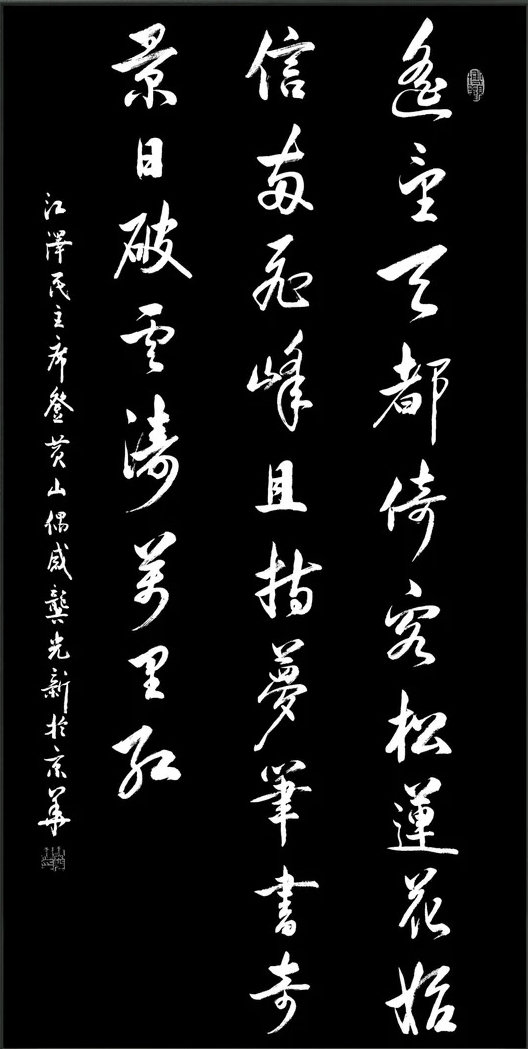 遙望天都倚客松蓮花始
信兩飛峰且持夢筆書奇
景日破雲濤萬里紅
江澤民主席登黄山偶感龔光新於京華